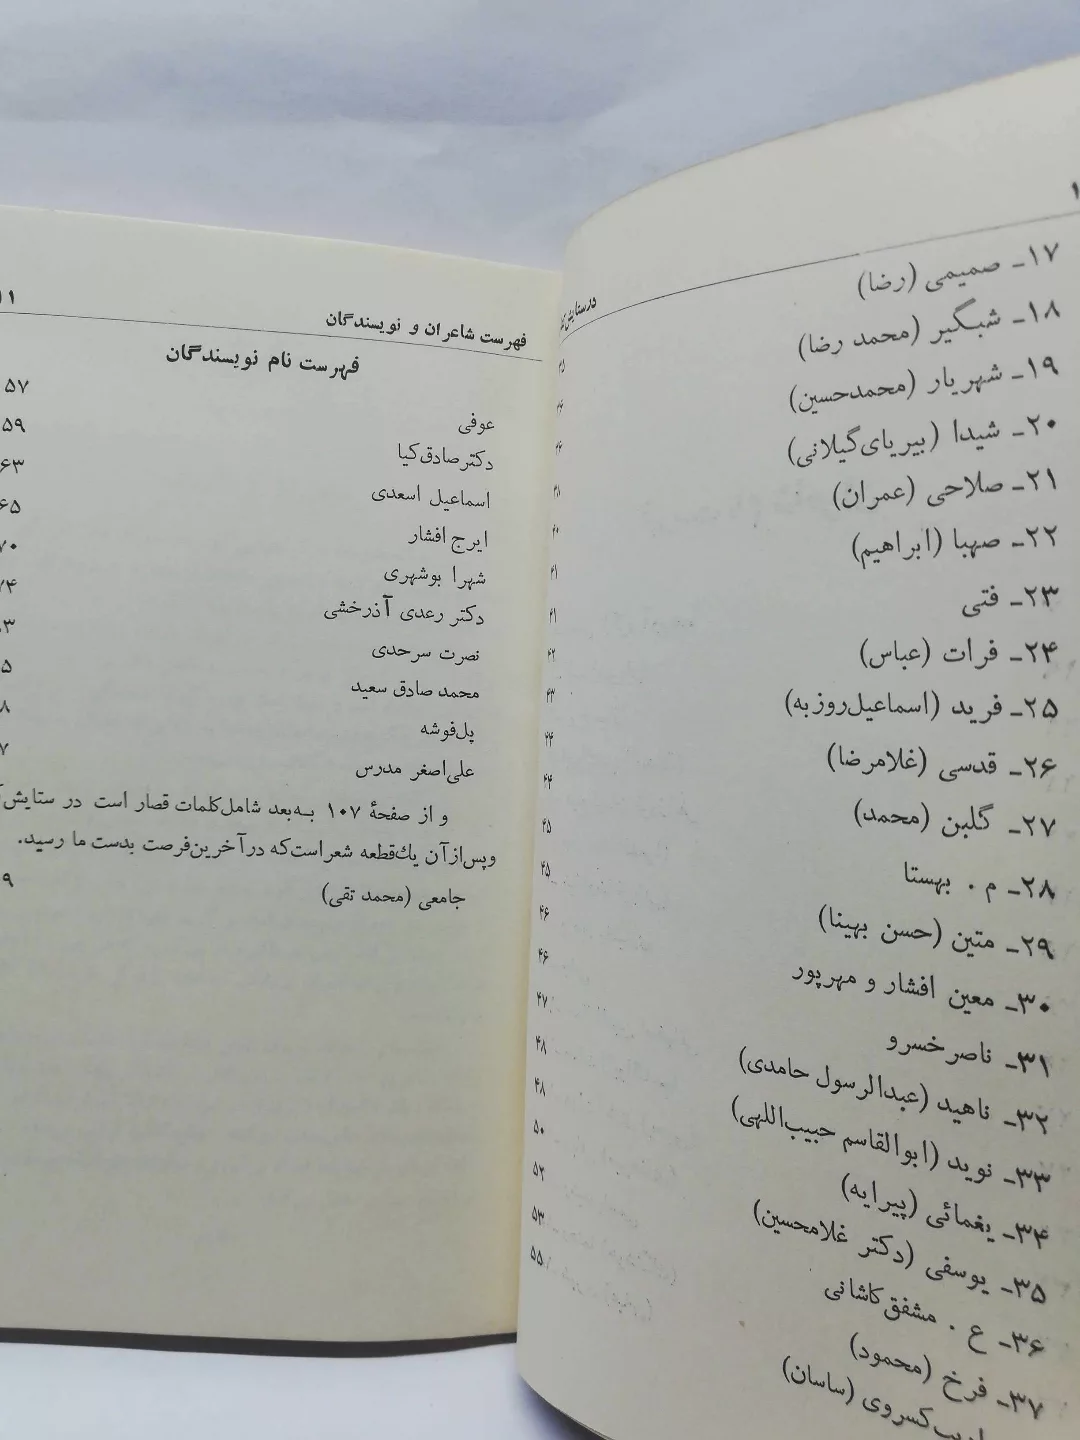 در ستایش
۱۷ـ صمیمی (رضا) ۳۵
۱۸ـ شبگیر (محمد رضا)
۱۹ـ شهریار (محمدحسین)
۲۰ـ شیدا (بیریای‌گیلانی)
۲۱ـ صلاحی (عمران)
۲۲ـ صهبا (ابراهیم) ۴۱
۲۳ـ فتی ۴۱
۲۴ـ فرات (عباس) ۴۲
۲۵ـ فرید (اسماعیل‌روزبه) ۴۳
۲۶ـ قدسی (غلامرضا) ۴۴
۲۷ـ گلبن (محمد) ۴۴
۲۸ـ م . بهستا ۴۵
۲۹ـ متین (حسن بهینا) ۴۵
۳۰ـ معین افشار و مهرپور ۴۶
۳۱ـ ناصرخسرو ۴۶
۳۲ـ ناهید (عبدالرسول حامدی) ۴۷
۳۳ـ نوید (ابوالقاسم حبیب‌اللهی) ۴۸
۳۴ـ یغمائی (پیرایه) ۴۸
۳۵ـ یوسفی (دکتر غلامحسین) ۵۰
۳۶ـ ع . مشفق‌کاشانی ۵۲
۳۷ـ فرخ (محمود) ۵۳
ادیب‌کسروی (ساسان) ۵۵
فهرست شاعران و نویسندگان ۱۱
فهرست نام نویسندگان
عوفی ۵۷
دکتر صادق‌کیا ۵۹
اسماعیل اسعدی ۶۳
ایرج افشار ۶۵
شهرا بوشهری ۷۰
دکتر رعدی آذرخشی
نصرت سرحدی
محمد صادق سعید
پل‌فوشه
علی‌اصغر مدرس
و از صفحهٔ ۱۰۷ به‌بعد شامل‌کلمات قصار است در ستایش
وپس‌ازآن یك‌قطعه شعراست‌که درآخرین‌فرصت بدست ما رسید.
جامعی (محمد تقی)